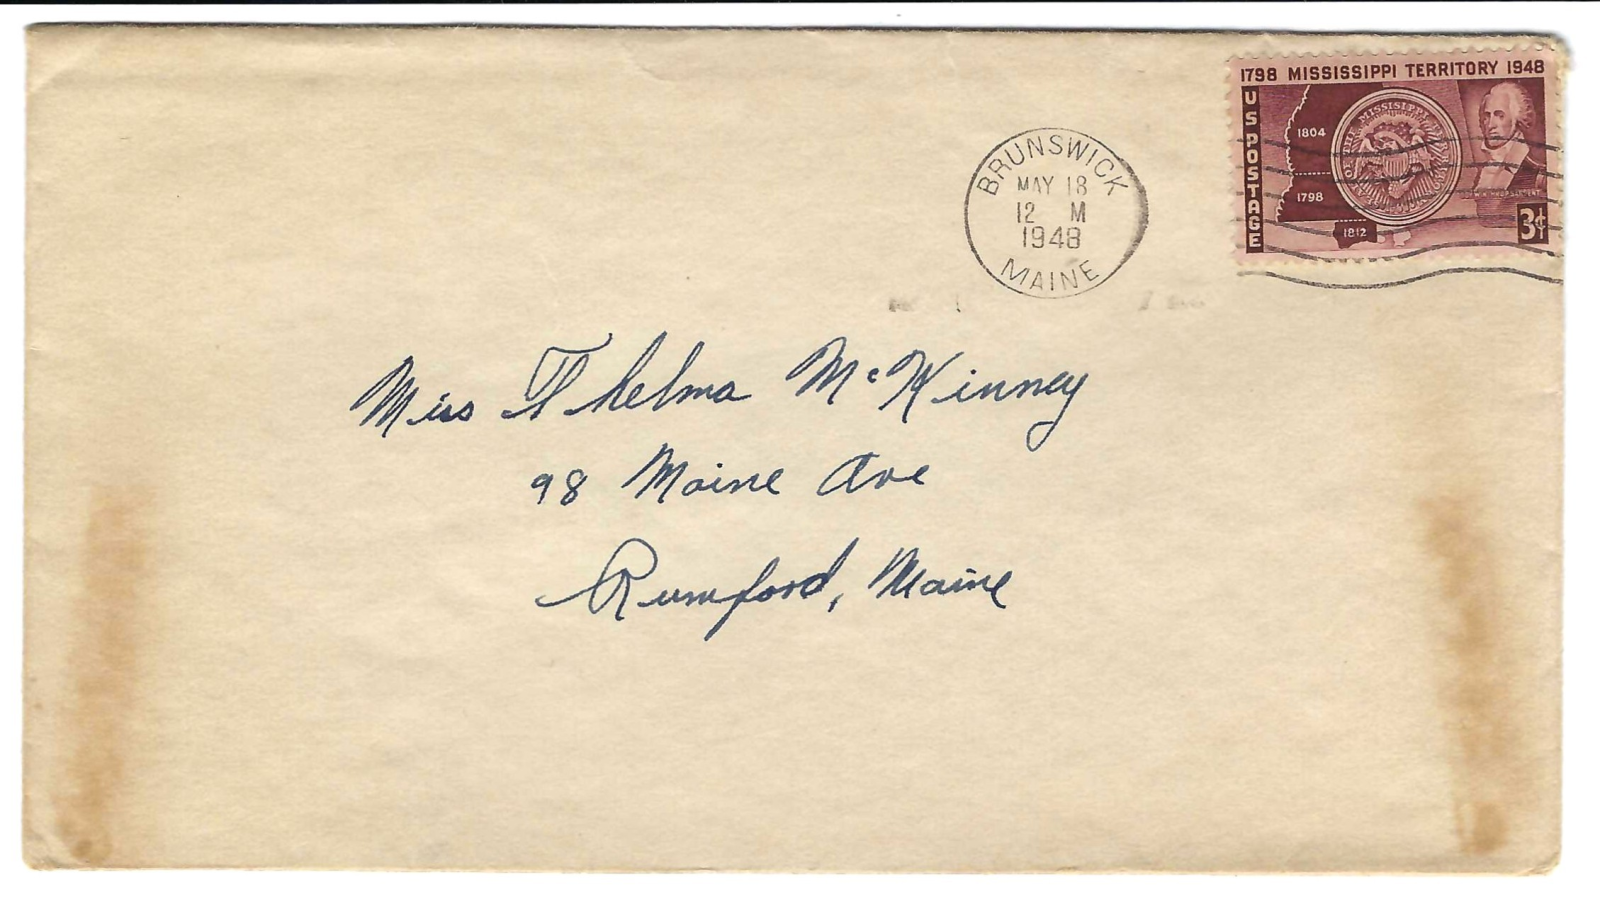 1798 MISSISSIPPI TERRITORY 1948
US POSTAGE
1804
1798
1812
3¢
BRUNSWICK
MAY 18
12 M
1948
MAINE
Miss Thelma McKinney
98 Maine Ave
Rumford, Maine